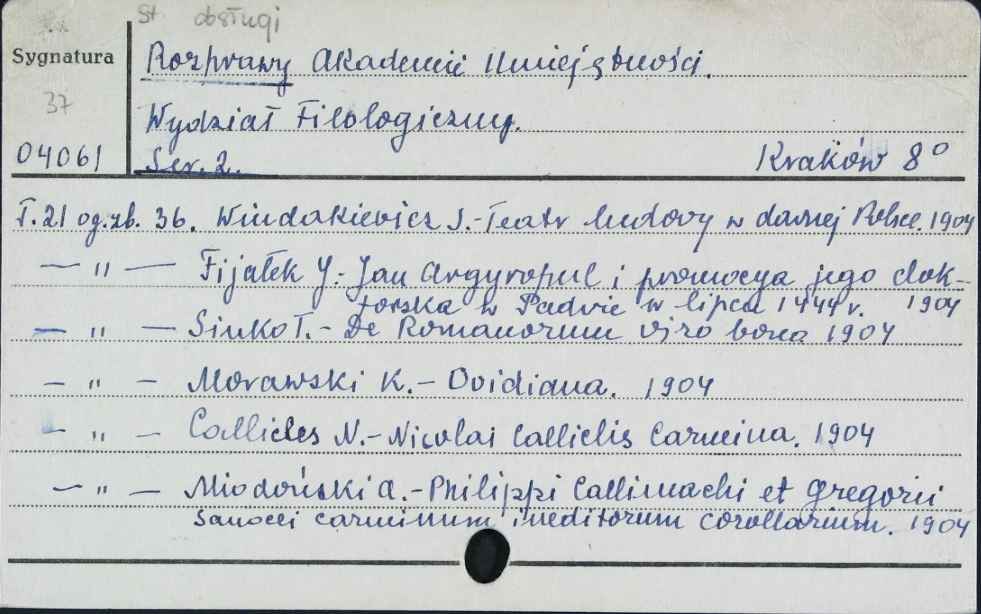 st obsługi
Sygnatura
37
04061
Rozprawy Akademii Umiejętności.
Wydział Filologiczny.
Ser. 2. Kraków 8°
T. 21 og. zb. 36. Windakiewicz S. - Teatr ludowy w dawnej Polsce. 1904
— " — Fijałek J. - Jan Argyropul i promocya jego dok-
torska w Padwie w lipcu 1444 r. 1904
— " — Sinko T. - De Romanorum viro bono 1904
— " — Morawski K. - Ovidiana. 1904
— " — Callicles N. - Nicolai Calliclis Carmina. 1904
— " — Miodoński A. - Philippi Callimachi et Gregorii
Sanocei carminum ineditorum corollarium. 1904